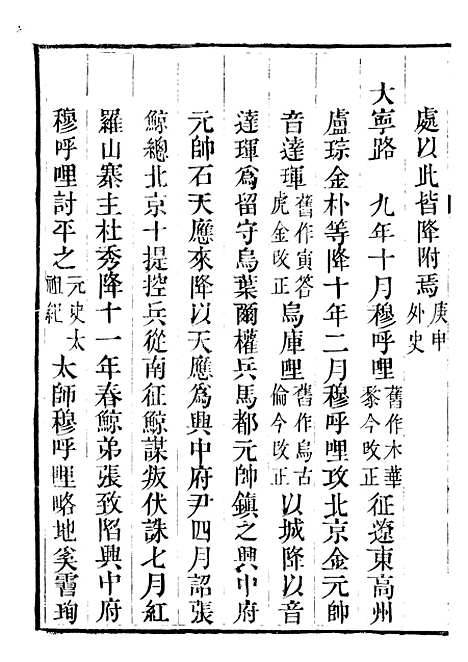 處以此皆降附焉庚申外史
大寧路　九年十月穆呼哩舊作木華黎今改正征遼東高州
盧琮金朴等降十年二月穆呼哩攻北京金元帥
音達琿舊作寅答虎金改正烏庫哩舊作烏古倫今改正以城降以音
達琿爲留守烏葉爾權兵馬都元帥鎮之興中府
元帥石天應來降以天應爲興中府尹四月詔張
鯨總北京十提控兵從南征鯨謀叛伏誅七月紅
羅山寨主杜秀降十一年春鯨弟張致陷興中府
穆呼哩討平之元史太祖紀太師穆呼哩略地奚霫珣